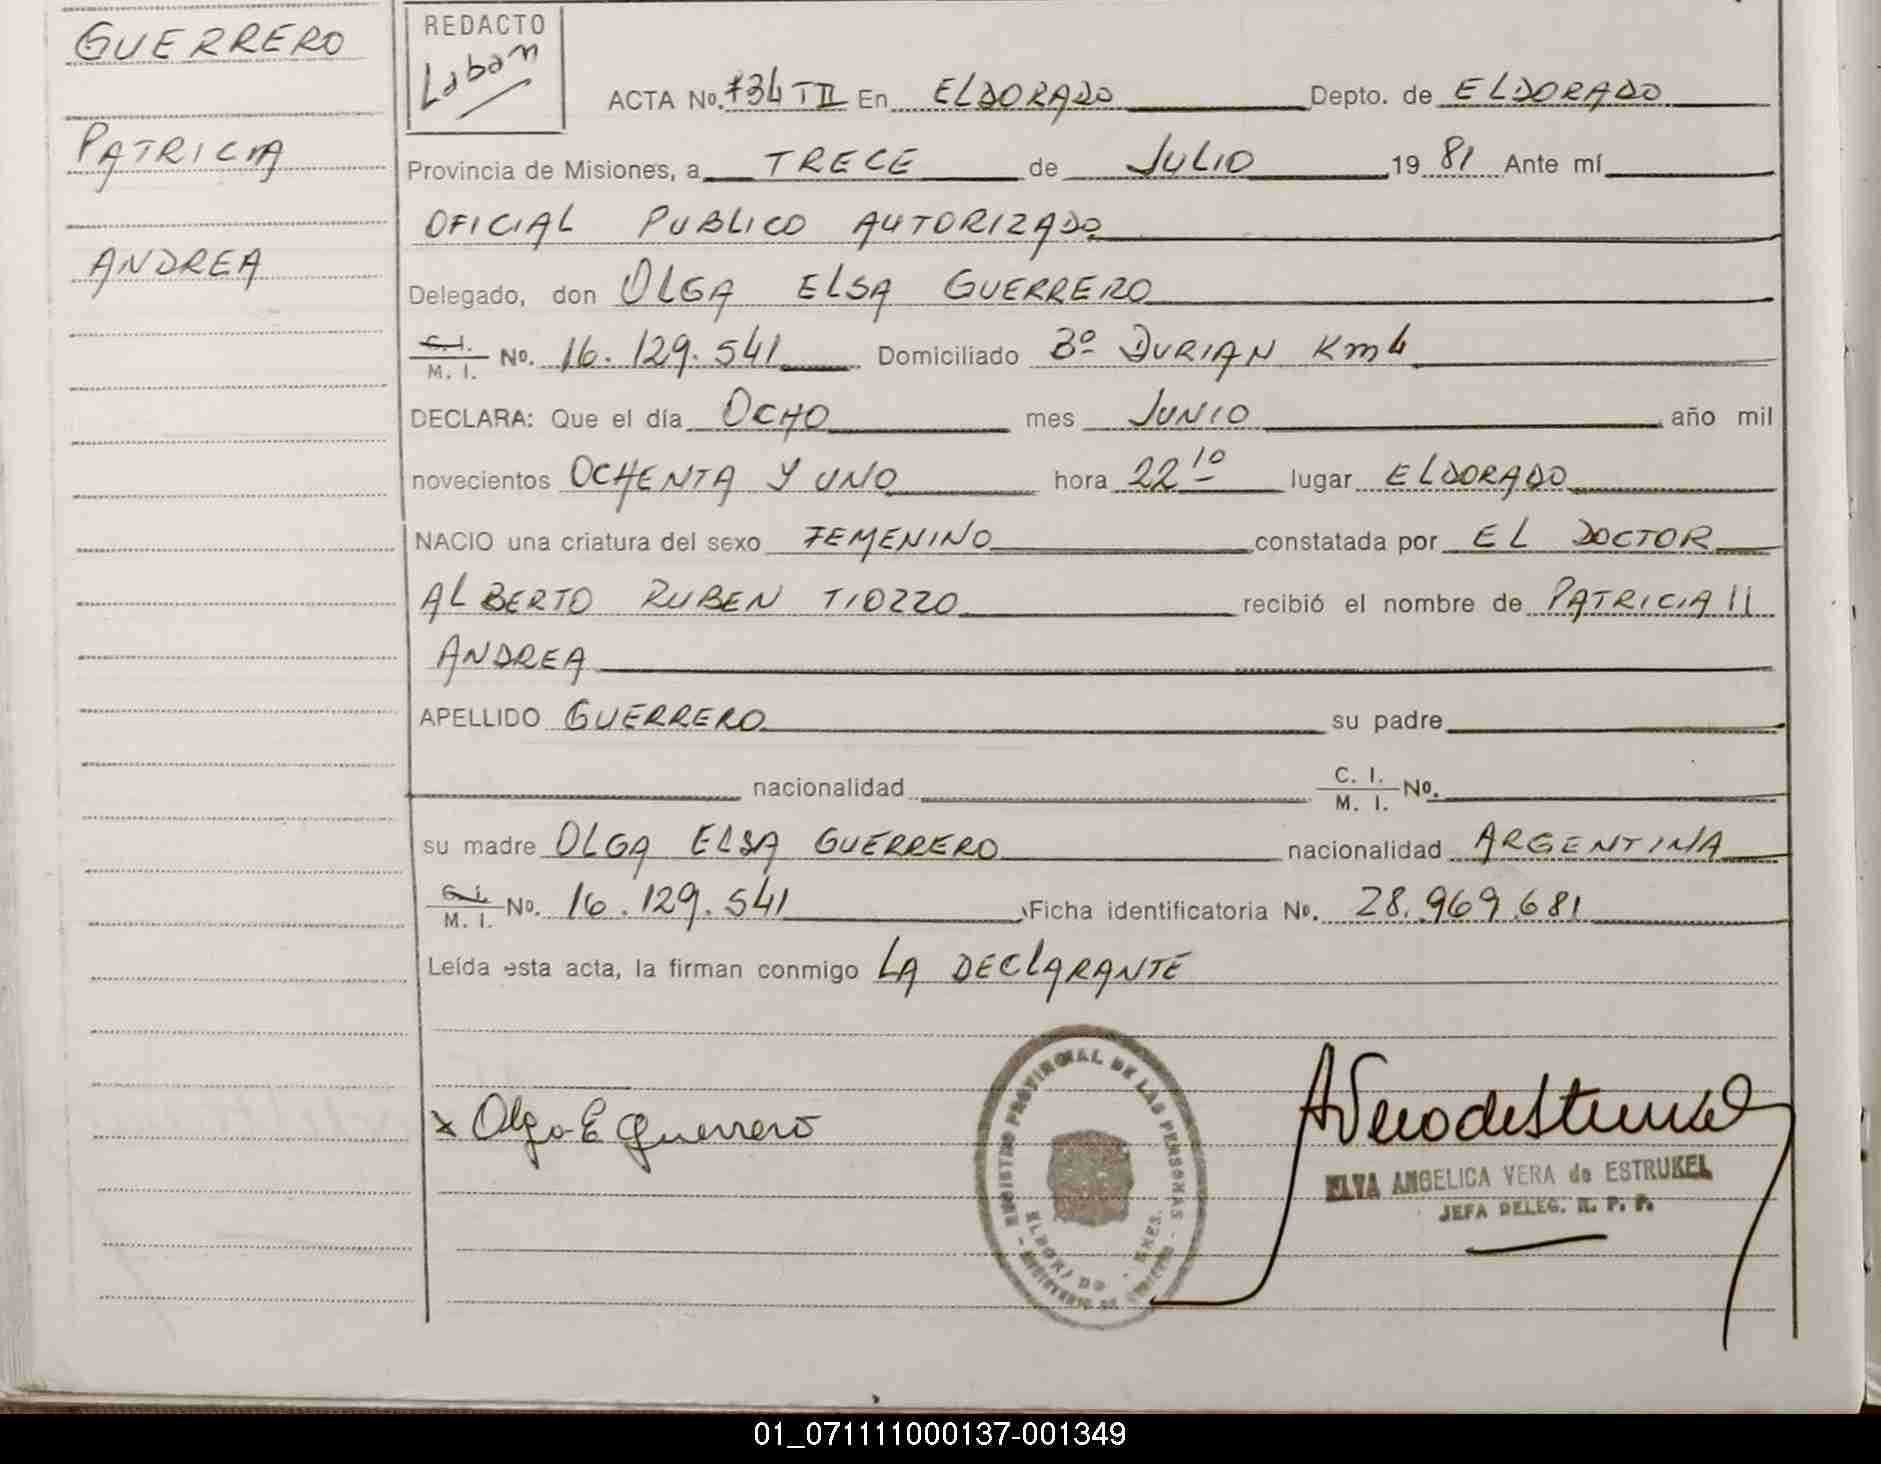 GUERRERO
PATRICIA
ANDREA
REDACTO
Laban
ACTA No. 734 TII En ELDORADO Depto. de ELDORADO
Provincia de Misiones, a TRECE de JULIO 19 81 Ante mí
OFICIAL PUBLICO AUTORIZADO
Delegado, don OLGA ELSA GUERRERO
C. I.
M. I. No. 16.129.541 Domiciliado Bº DURIAN Km 4
DECLARA: Que el día OCHO mes JUNIO año mil
novecientos OCHENTA Y UNO hora 22 10 lugar ELDORADO
NACIO una criatura del sexo FEMENINO constatada por EL DOCTOR
ALBERTO RUBEN TIOZZO recibió el nombre de PATRICIA
ANDREA
APELLIDO GUERRERO su padre
nacionalidad C. I.
M. I. No.
su madre OLGA ELSA GUERRERO nacionalidad ARGENTINA
C. I.
M. I. No. 16.129.541 Ficha identificatoria No. 28.969.681
Leída esta acta, la firman conmigo LA DECLARANTE
x Olga E Guerrero
REGISTRO PROVINCIAL DE LAS PERSONAS
ELDORADO
MNES.
AVeradeEstrukel
ELVA ANGELICA VERA de ESTRUKEL
JEFA DELEG. R. P. P.
01_071111000137-001349